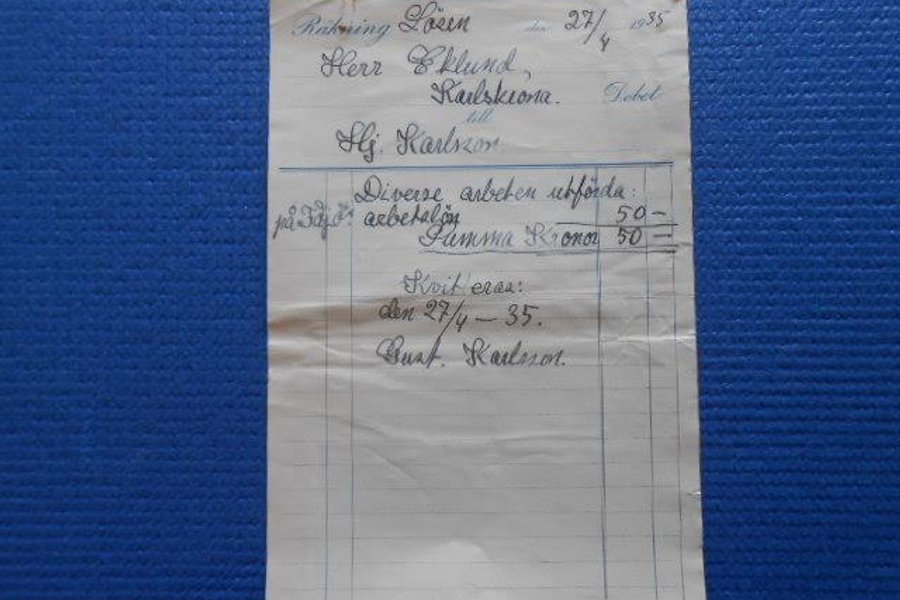 Räkning Lösen den 27/4 1935
Herr Eklund,
Karlskrona. Debet
till
Hj. Karlsson
Diverse arbeten utförda:
på arbetslön 50 -
Summa Kronor 50 -
Kvitteras:
den 27/4 - 35.
Gust. Karlsson.